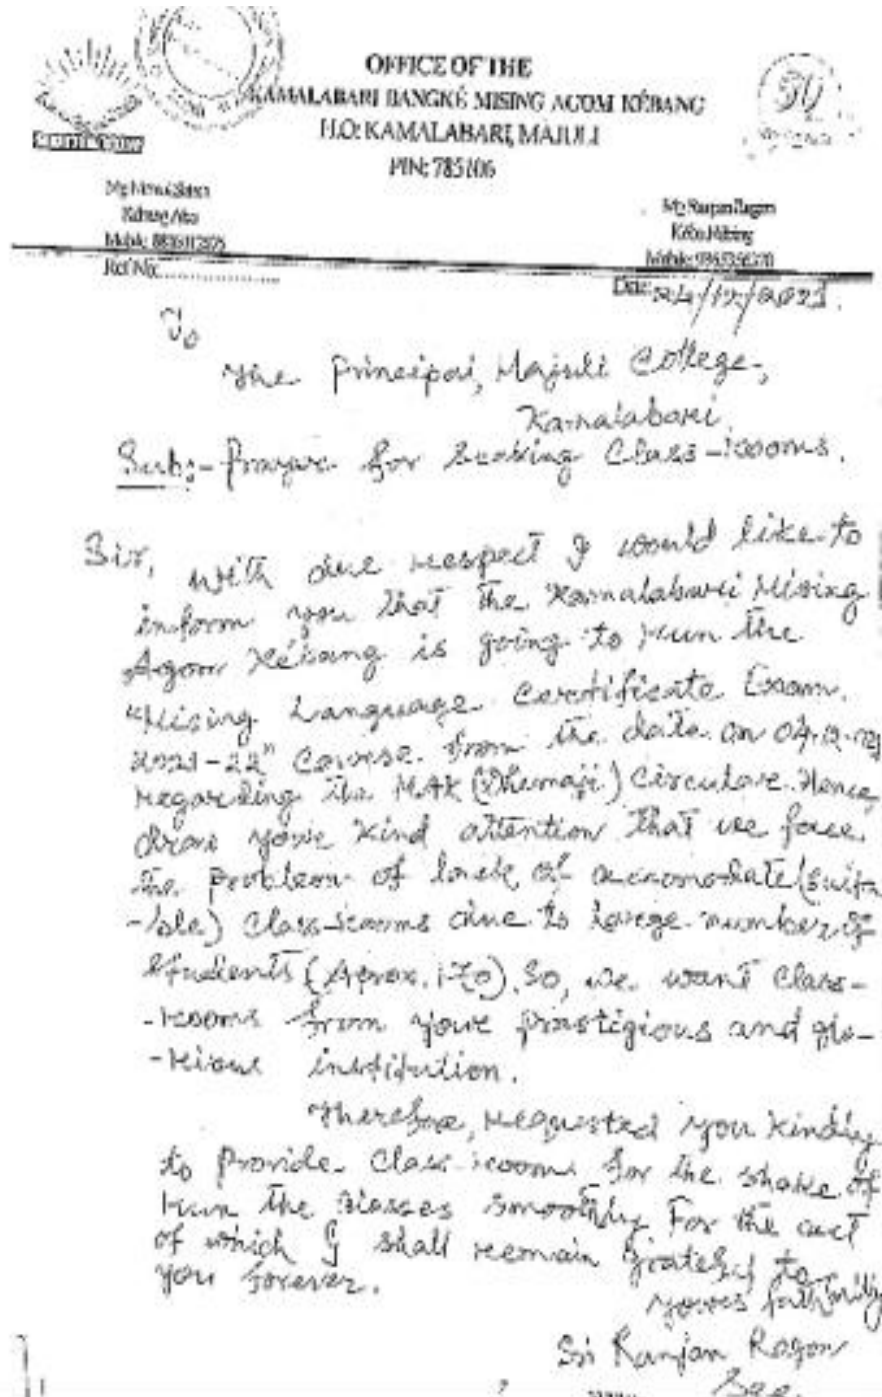 OFFICE OF THE
KAMALABARI BANGKÉ MISING AGOM KÉBANG
H.O: KAMALABARI, MAJULI
PIN: 785106
Kébang Abu
Mobile:
Mobile:
Ref No:..............
Date: 24/12/2021.
To
The Principal, Majuli College,
Kamalabari.
Sub:- Prayer for seaking Class-rooms.
Sir,
With due respect I would like to
inform you that the Kamalabari Mising
Agom Kébang is going to run the
"Mising Language Certificate Exam.
2021-22" Course. from the date on
regarding the MAK (Dhemaji) Circular. Hence,
draw your kind attention that we face
the problem of lack of accomodate (suita
-ble) Class-rooms due to large number of
students (Aprox. 170). So, we want Class-
-rooms from your prastigious and glo-
-rious institution.
Therefore, requested you kindly
to provide Class-rooms for the shake of
run the classes smoothly. For the act
of which I shall remain grateful to
you forever.
Yours faithfully
Sri Ranjan Regon